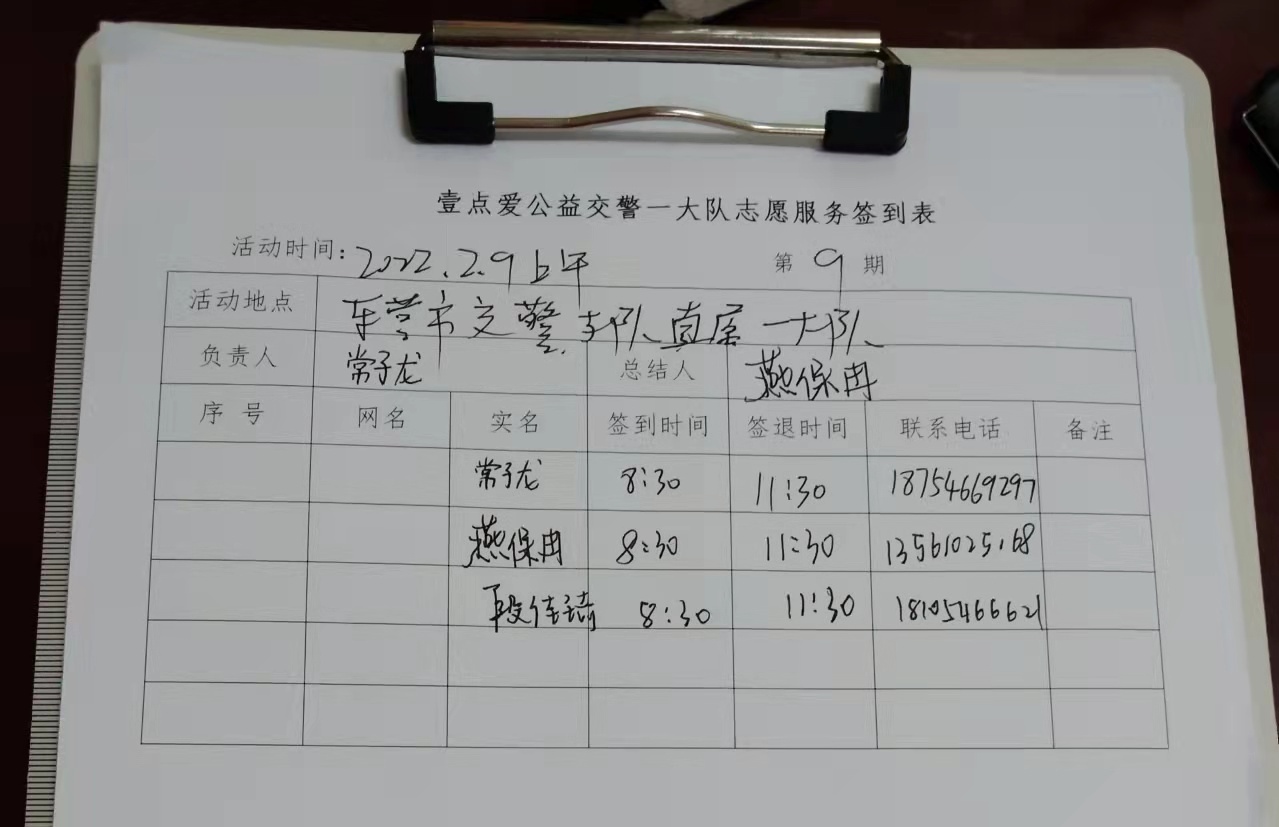 壹点爱公益交警一大队志愿服务签到表
活动时间：2022.2.9上午 第9期
活动地点 东营市交警支队直属一大队
负责人 常子龙 总结人 燕保冉
序号 网名 实名 签到时间 签退时间 联系电话 备注
常子龙 8:30 11:30 18754669297
燕保冉 8:30 11:30 13561025168
段佳琦 8:30 11:30 18105466621